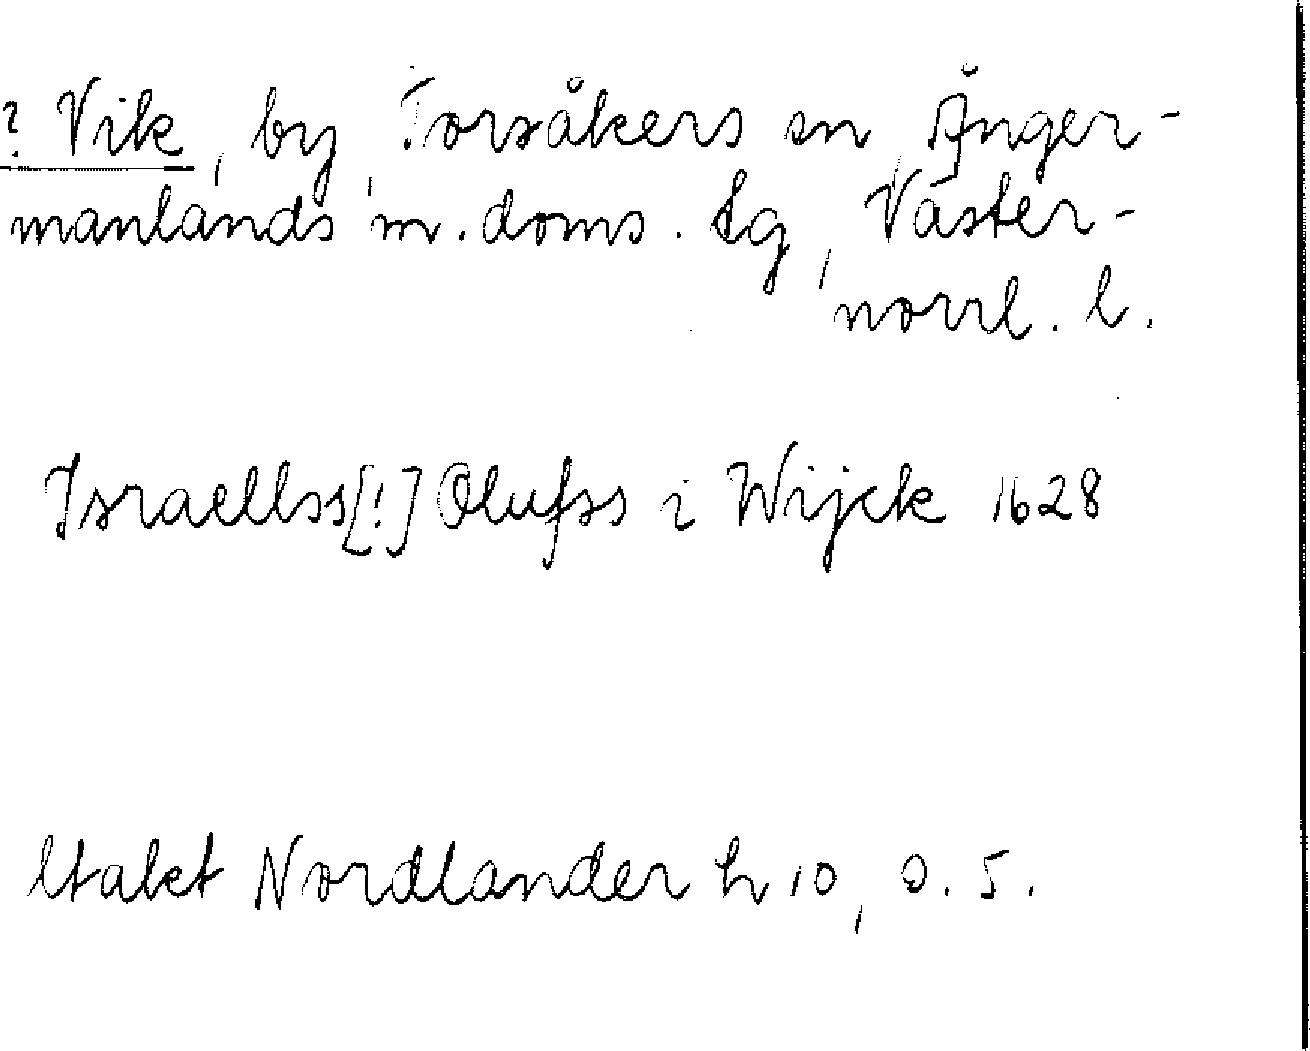 ? Vik, by, Torsåkers sn, Ånger-
manlands m. doms. tg, Väster-
norrl. l.
Israellss[!] Olufss i Wijck 1628
Utakt Nordlander h 10, s. 5.